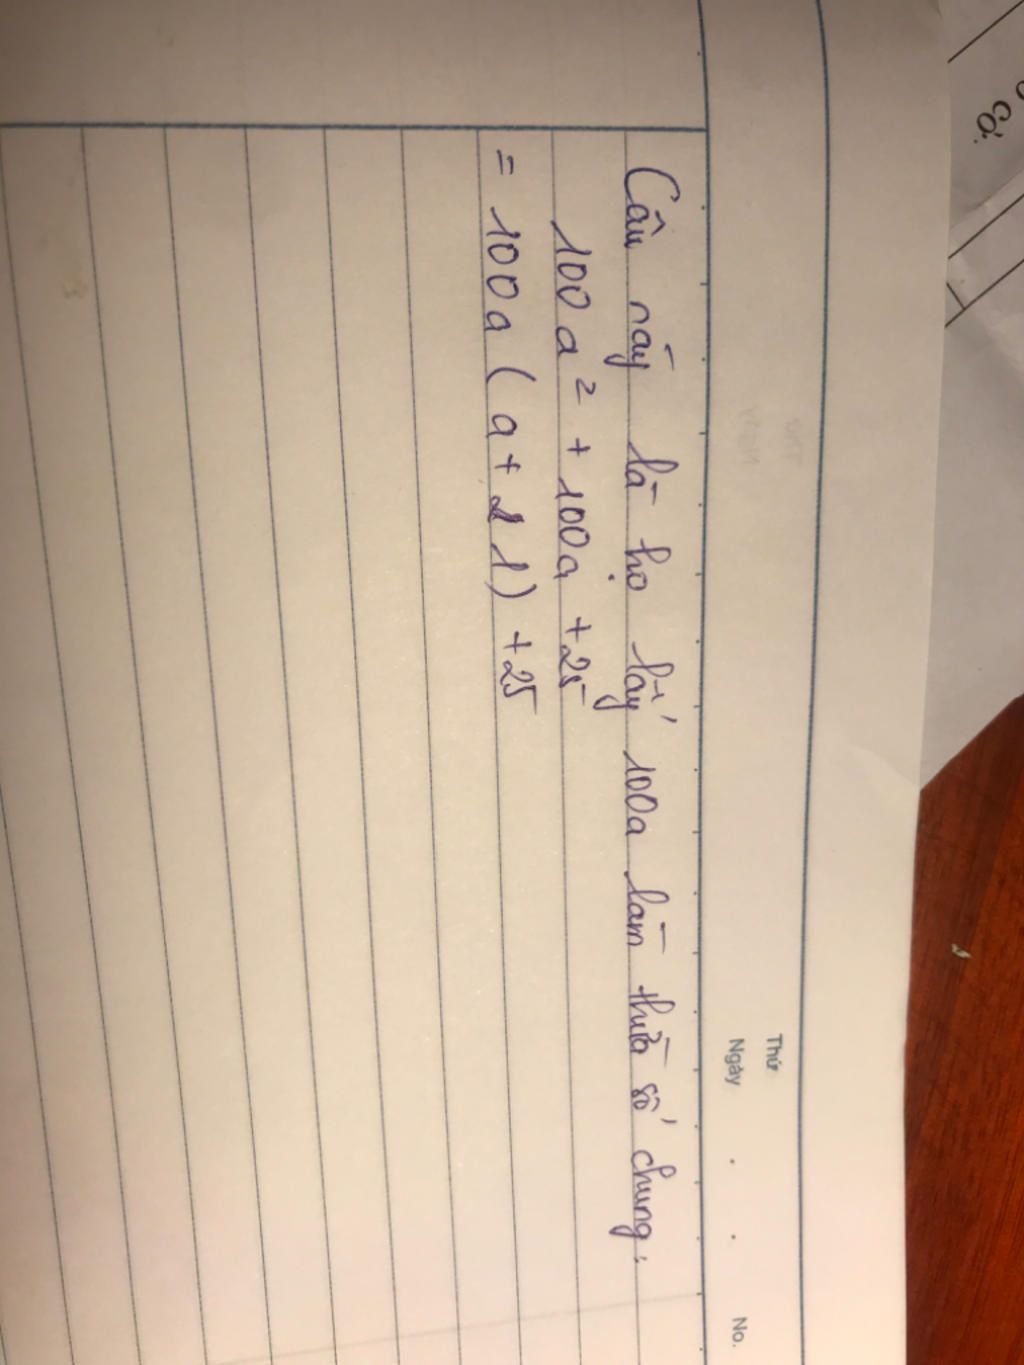 Thứ
Ngày . . No.
Câu này là họ lấy 100a làm thừa số chung:
100a² + 100a + 25
= 100a (a + 1) + 25